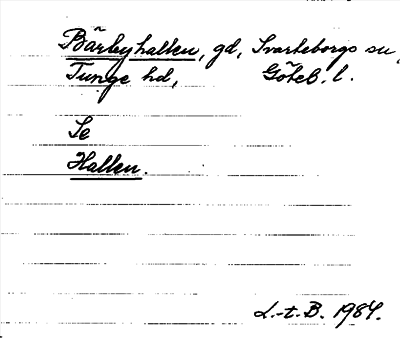 Bärbyhallen, gd, Svarteborgs sn,
Tunge hd, Göteb. l.
Se
Hallen.
L.-t. B. 1984.